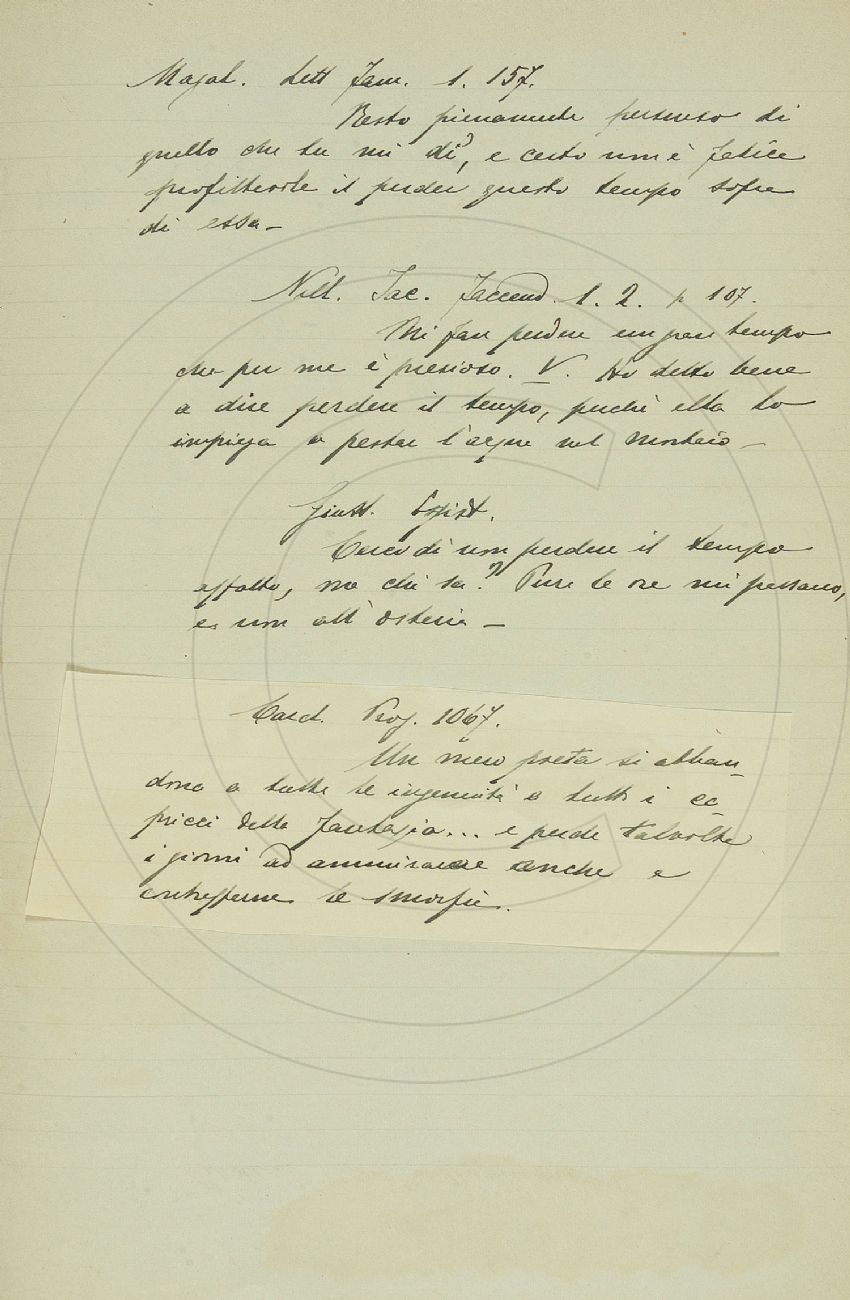 Magal. Lett. Fam. 1. 157.
Resto pienamente persuaso di
quello che tu mi di', e certo non è fatica
profittevole il perder questo tempo sopra
di essa —
Nell. Iac. Faccend. 1. 2. p 107.
Mi fan perdere un gran tempo
che per me è prezioso. V. Ho detto bene
a dire perdere il tempo, perchè ella lo
impiega a pestar l'acqua nel mortaio —
Giust. Epist.
Cerco di non perdere il tempo
affatto, ma chi sa? Pure le ore mi passano,
e non all'osteria —
Card. Pros. 1067.
Un mero poeta si abban-
dona a tutte le ingenuità e tutti i ca-
pricci della fantasia... e perde talvolta
i giorni ad ammirare anche e
contraffarne le smorfie.